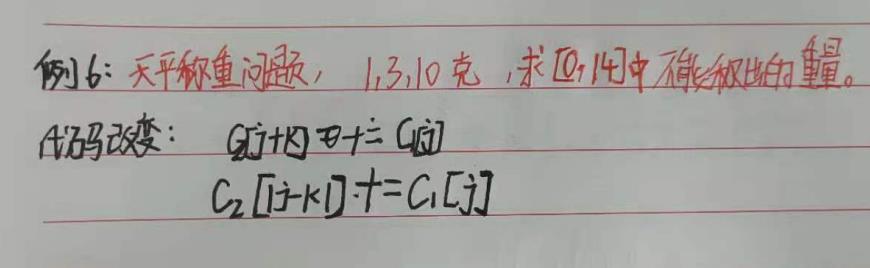 例6：天平称重问题， 1,3,10克，求[0,14]中不能称出的重量。
代码改变： C2[j+k] += C1[j]
C2[|j-k|] += C1[j]